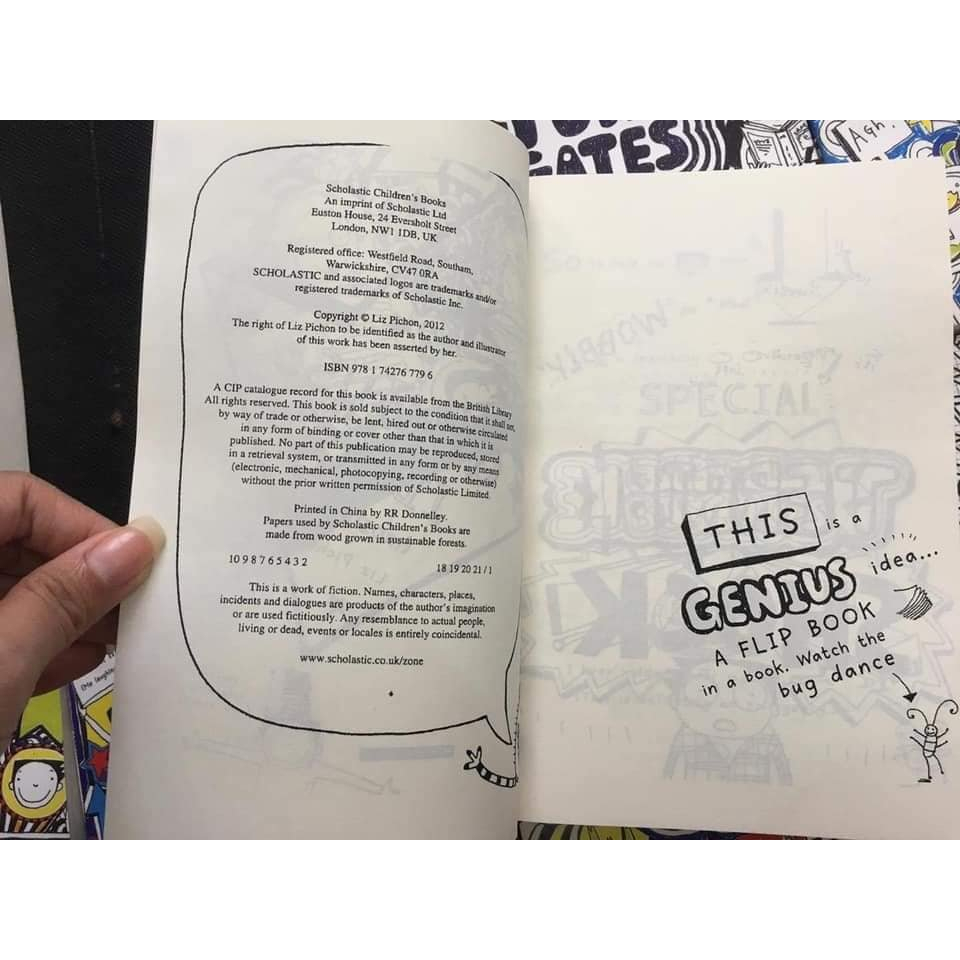 Scholastic Children's Books
An imprint of Scholastic Ltd
Euston House, 24 Eversholt Street
London, NW1 1DB, UK
Registered office: Westfield Road, Southam,
Warwickshire, CV47 0RA
SCHOLASTIC and associated logos are trademarks and/or
registered trademarks of Scholastic Inc.
Copyright © Liz Pichon, 2012
The right of Liz Pichon to be identified as the author and illustrator
of this work has been asserted by her.
ISBN 978 1 74276 779 6
A CIP catalogue record for this book is available from the British Library
All rights reserved. This book is sold subject to the condition that it shall not,
by way of trade or otherwise, be lent, hired out or otherwise circulated
in any form of binding or cover other than that in which it is
published. No part of this publication may be reproduced, stored
in a retrieval system, or transmitted in any form or by any means
(electronic, mechanical, photocopying, recording or otherwise)
without the prior written permission of Scholastic Limited.
Printed in China by RR Donnelley.
Papers used by Scholastic Children's Books are
made from wood grown in sustainable forests.
10 9 8 7 6 5 4 3 2 18 19 20 21 / 1
This is a work of fiction. Names, characters, places,
incidents and dialogues are products of the author's imagination
or are used fictitiously. Any resemblance to actual people,
living or dead, events or locales is entirely coincidental.
www.scholastic.co.uk/zone
GATES
Agh!
SPECIAL
THIS is a
GENIUS idea...
A FLIP BOOK
in a book. Watch the
bug dance